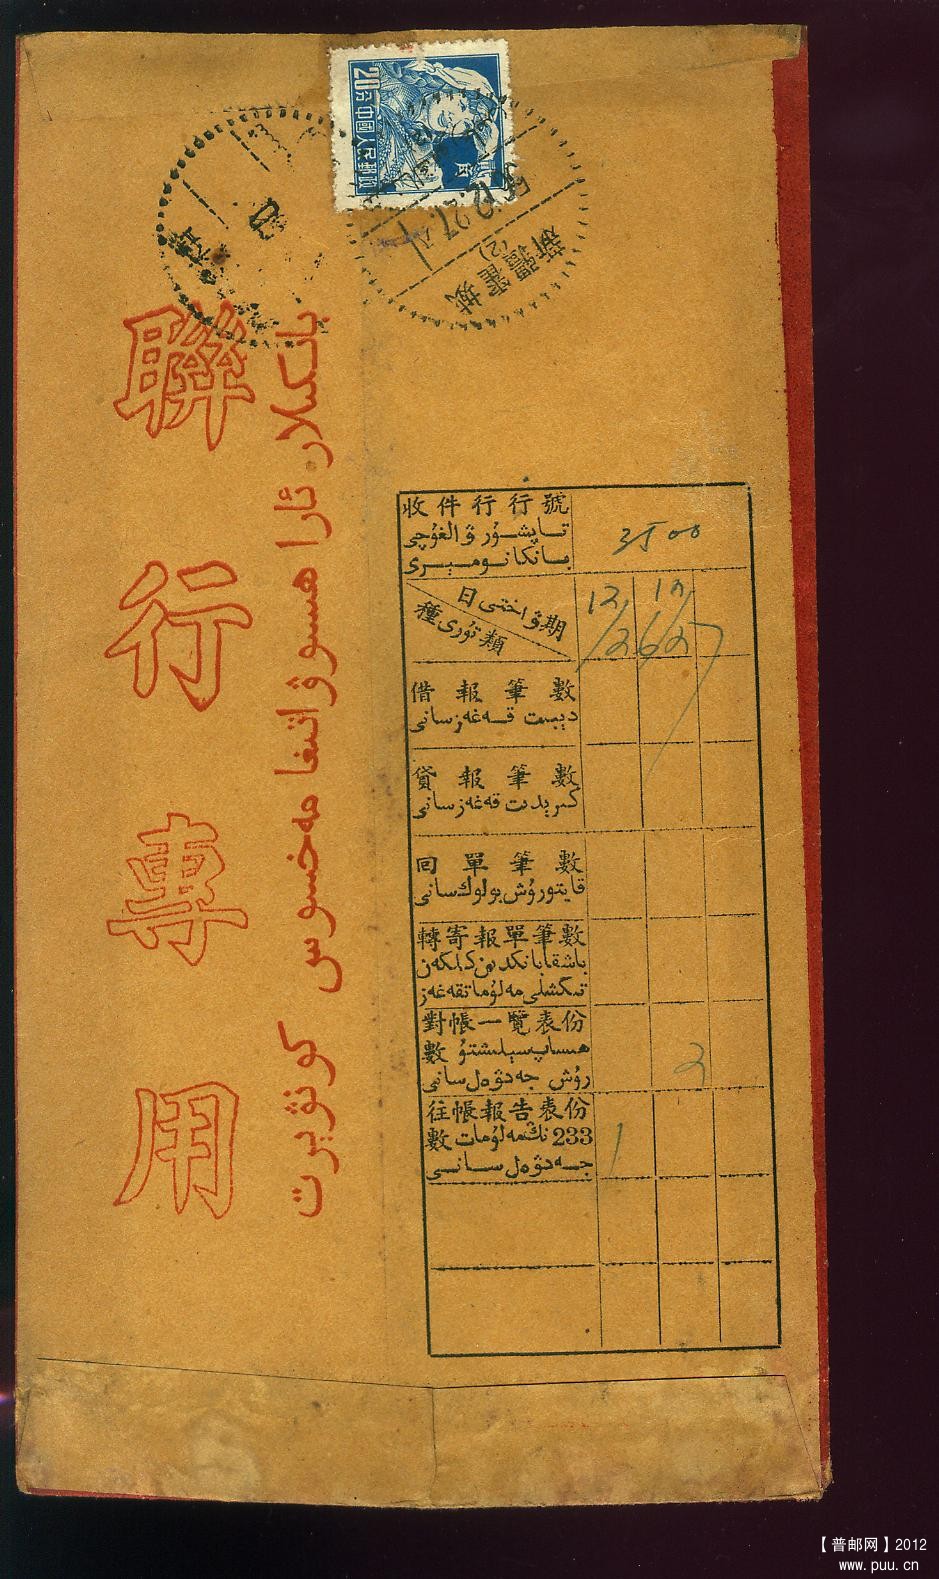 20分
中國人民郵政
新疆霍城
(2)
聯行專用
بانكىلار ئارا ھىسوۋاتىغا مەخسوس كونۋېرت
收件行行號
تاپشۇرۋالغۇچى
بانكا نومىرى
3500
日期
ۋاختى
種類
تۈرى
借報筆數
دېبىت قەغەز سانى
貸報筆數
كىرېدىت قەغەز سانى
回單筆數
قايتورۇش بولوك سانى
轉寄報單筆數
باشقا بانكىدىن كەلگەن
تىگىشلى مەلۇمات قەغەز
對帳一覽表份
數 ھىساپ سېلىشتۇ
رۇش جەدۋەل سانى
2
往帳報告表份
數 233 نىڭ مەلۇمات
جەدۋەل سانى
1
【普邮网】2012
www.puu.cn